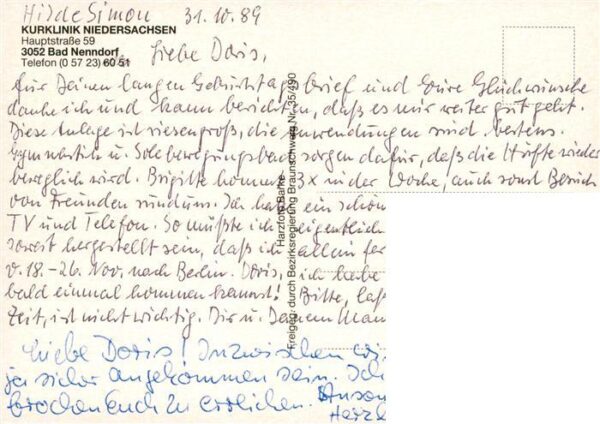 Hilde Simon 31.10.89
KURKLINIK NIEDERSACHSEN
Hauptstraße 59
3052 Bad Nenndorf
Telefon (0 57 23) 60 51
Liebe Doris,
Für Deinen langen Geburtstagsbrief und Eure Glückwünsche
danke ich und kann berichten, daß es mir weiter gut geht.
Diese Anlage ist riesengroß, die Anwendungen sind bestens.
Gymnastik u. Solebewegungsbad sorgen dafür, daß die Hüfte wieder
beweglich wird. Brigitte kommt 3x in der Woche, auch sonst Besuch
von Freunden rundum. Ich habe ein schön
TV und Telefon. So müßte ich eigentlich
soweit hergestellt sein, daß ich allein
v. 18.-26. Nov. nach Berlin. Doris, ich hebe
bald einmal kommen kannst! Bitte, laß
Zeit, ist nicht wichtig. Dir u. Deinem Man
Liebe Doris! Inzwischen
ja sicher angekommen sein. Ich
brochen Euch zu erreichen. Anson
Herzl
Harzfoto Barke
Freigeg. durch Bezirksregierung Braunschweig Nr. 35/490